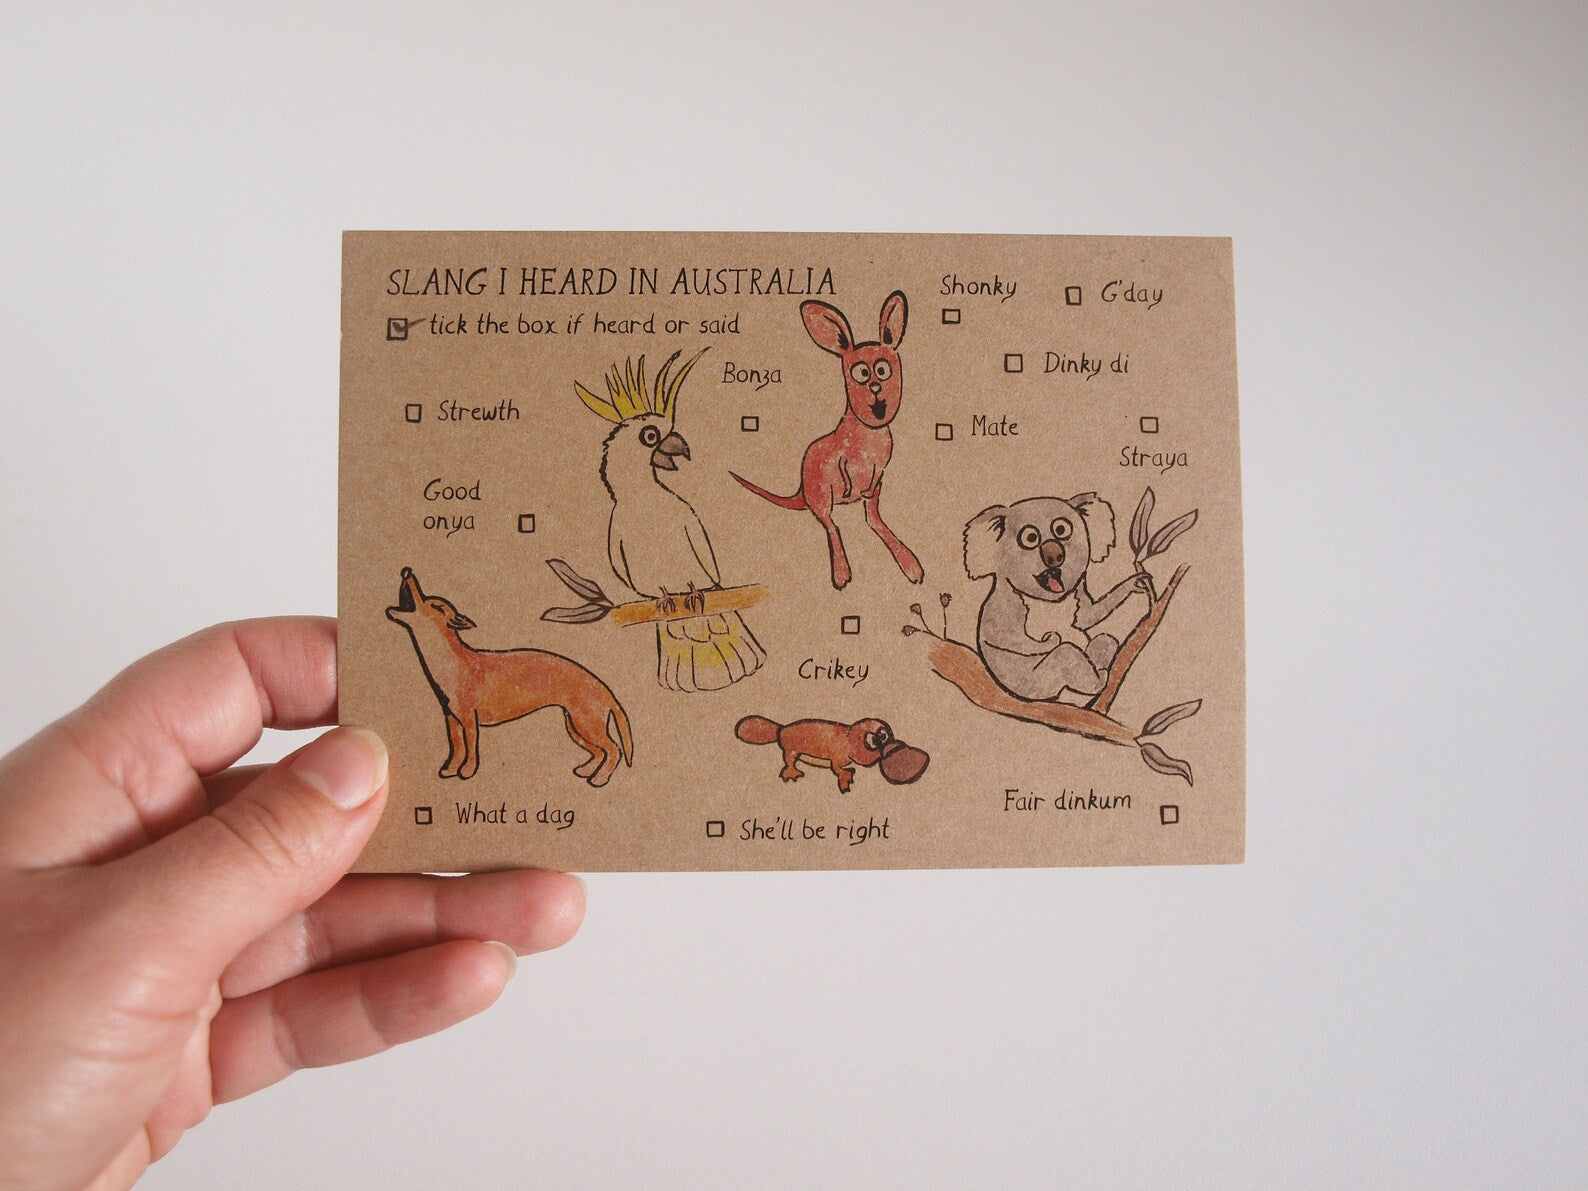 SLANG I HEARD IN AUSTRALIA
tick the box if heard or said
Shonky
G'day
Dinky di
Bonza
Strewth
Mate
Straya
Good
onya
Crikey
What a dag
She'll be right
Fair dinkum